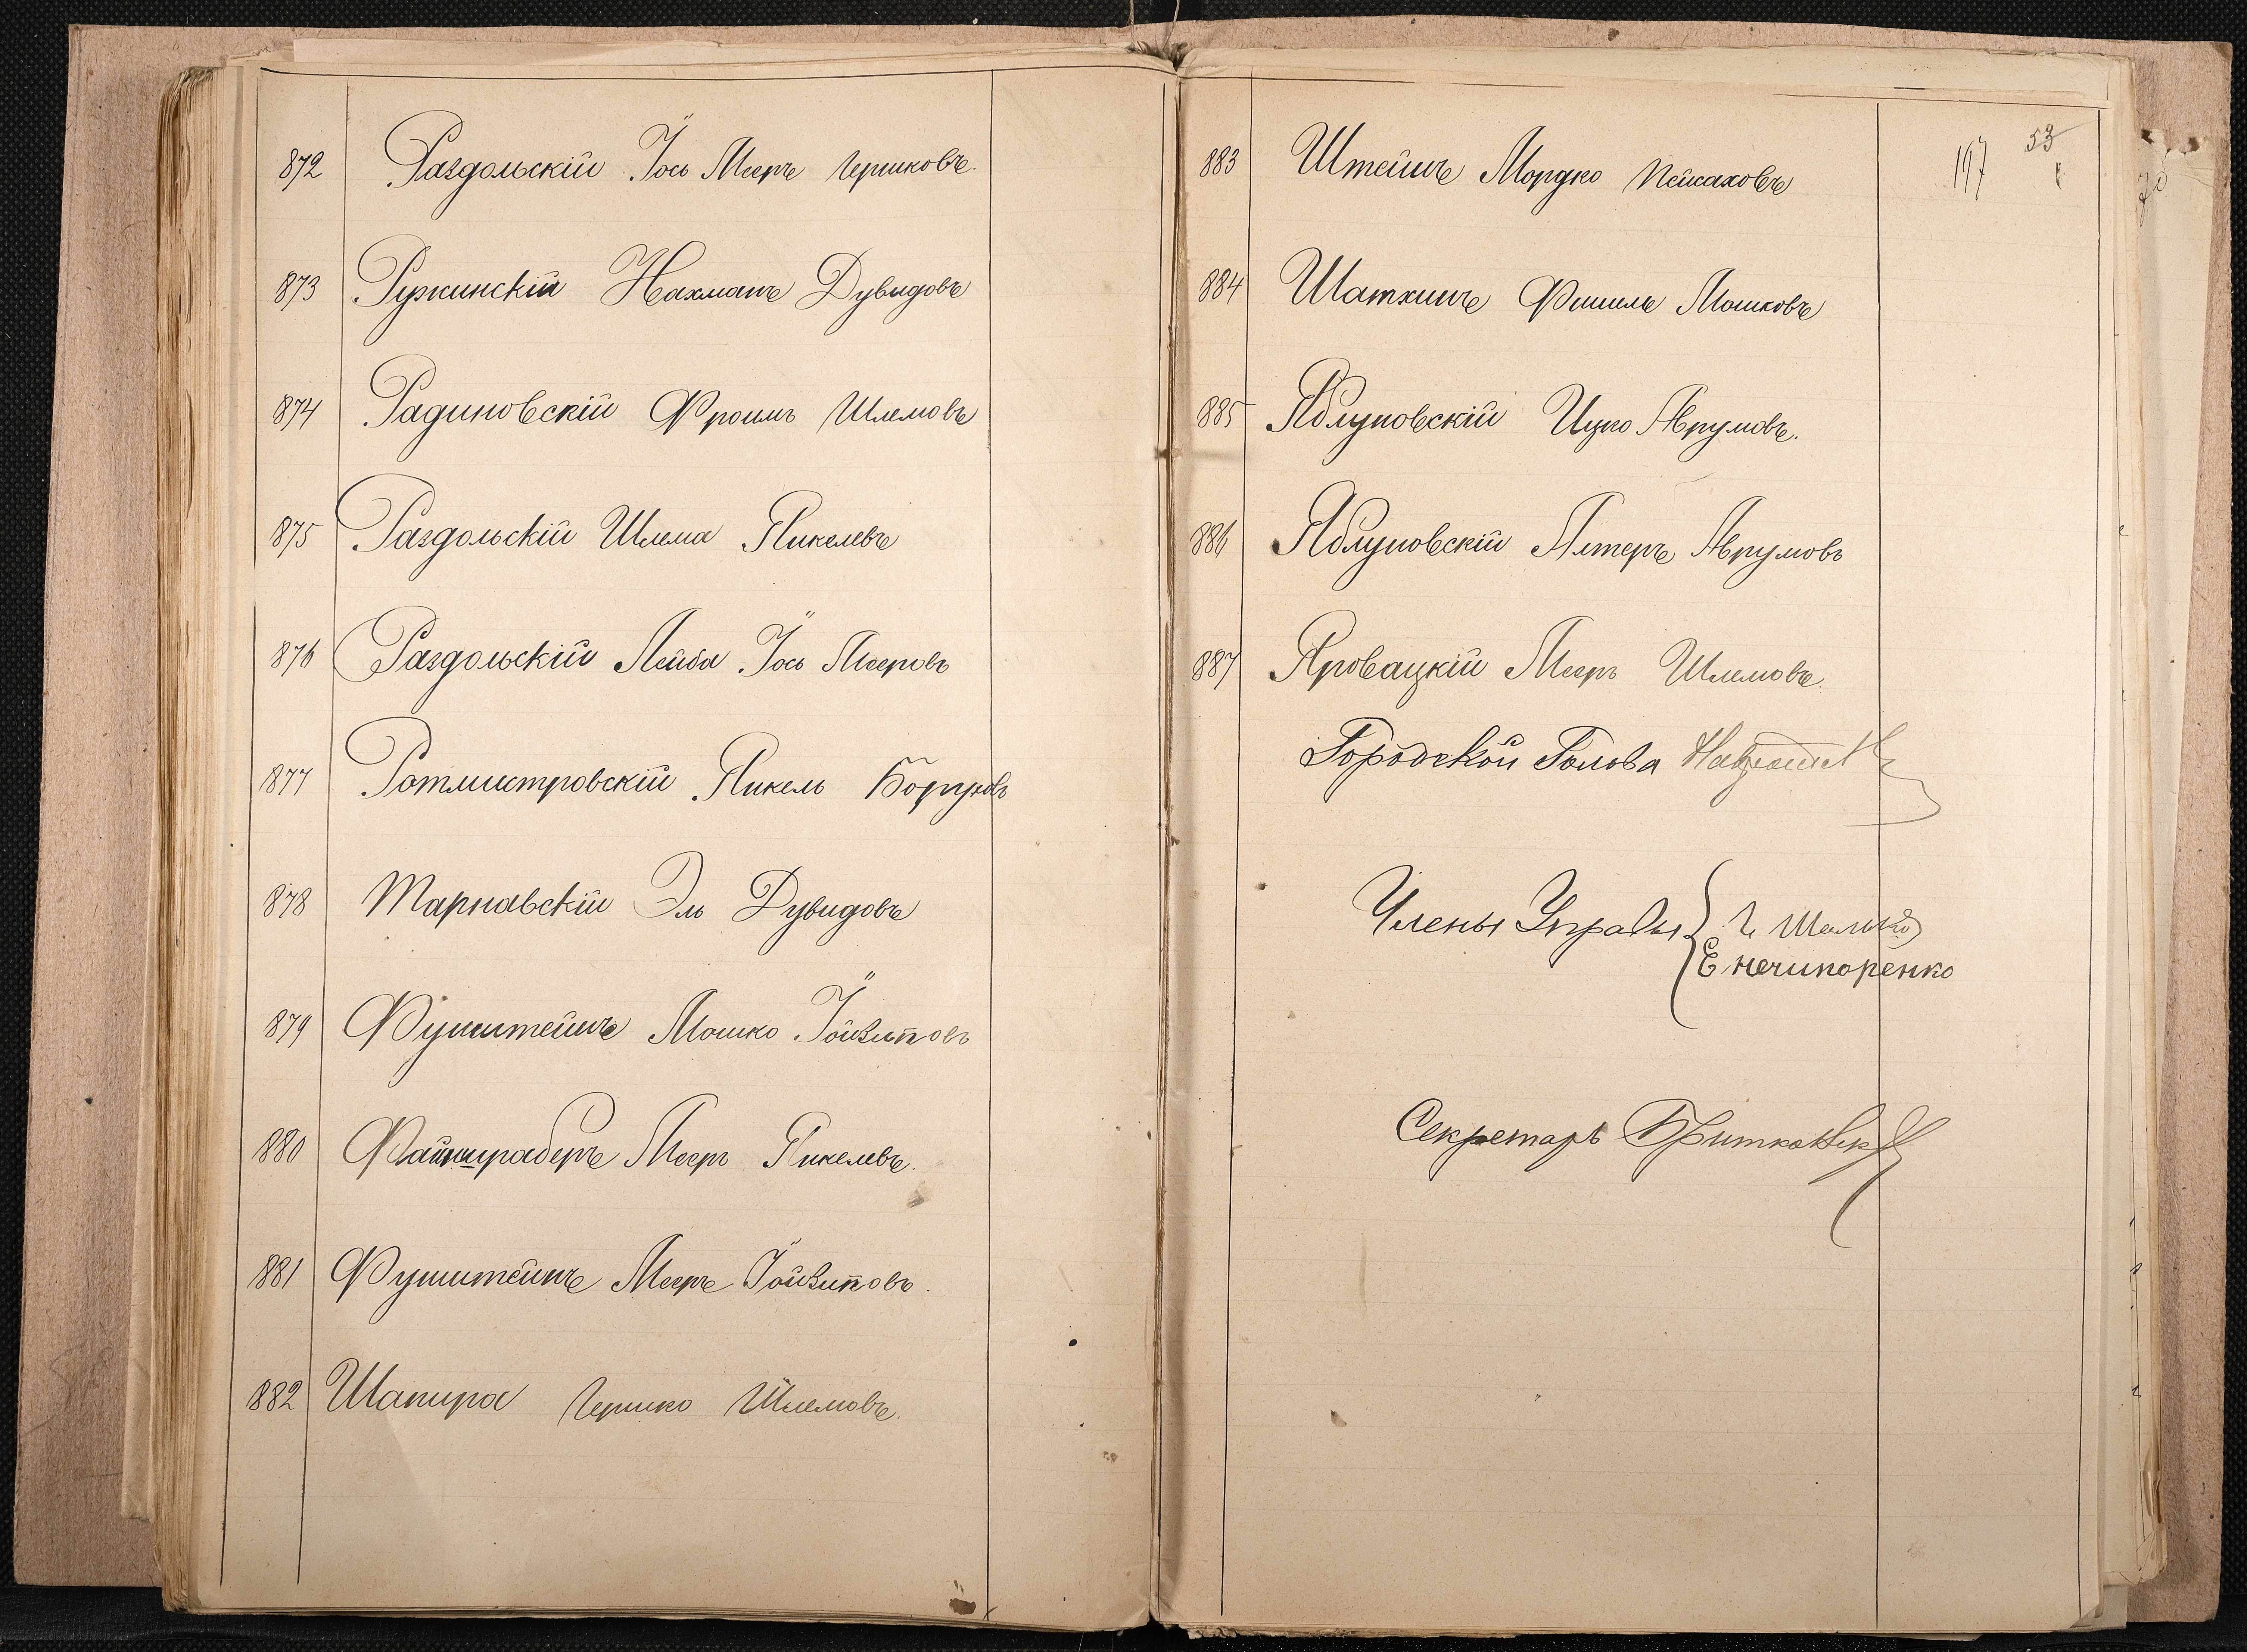 872 Раздольскій Іось Мееръ Гершковъ.
873 Ружинскій Нахманъ Дувидовъ
874 Радиновскій Фроимъ Шлемовъ
875 Раздольскій Шлема Янкелевъ
876 Раздольскій Лейба Іось Мееровъ
877 Ротмистровскій Янкель Боруховъ
878 Тарнавскій Эль Дувидовъ
879 Фуштейнъ Мошко Іойзиповъ
880 Мееръ Янкелевъ.
881 Фуштейнъ Мееръ Іойзиповъ.
882 Шапира Гершко Шлемовъ.
883 Штейнъ Мордко Пейсаховъ
197 53
884 Шатхинъ Фишель Мошковъ
885 Яблуновскій Ицко Аврумовъ.
886 Яблуновскій Алтеръ Аврумовъ
887 Яровацкій Мееръ Шлемовъ.
Городской Голова
Члены Управы
Е Нечипоренко
Секретарь